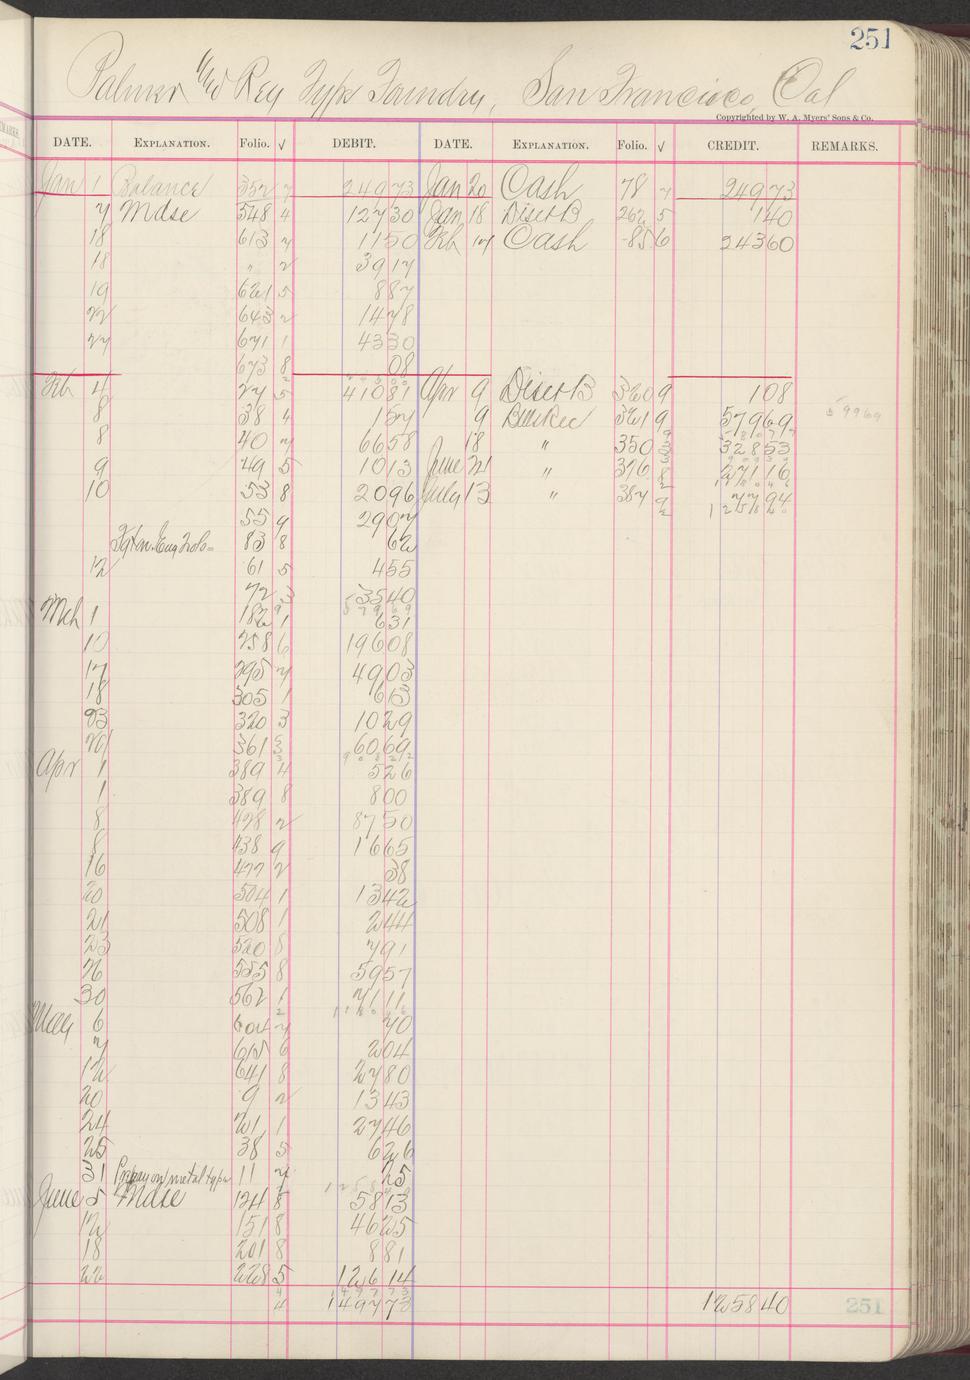 251
Palmer & Rey Type Foundry, San Francisco, Cal
Copyrighted by W. A. Myers' Sons & Co.
DATE. EXPLANATION. Folio. √ DEBIT. DATE. EXPLANATION. Folio. √ CREDIT. REMARKS.
Jan 1 Balance 352 7 249 73 Jan 20 Cash 78 7 249 73
7 Mdse 548 4 127 30 Jan 18 Disct B 262 5 1 40
18 613 7 11 50 Feb 17 Cash 85 6 243 60
18 " 2 39 17
19 621 5 8 87
22 643 2 14 78
27 671 1 43 30
673 8 08
Feb 4 27 5 410 81 Apr 9 Disct B 320 9 1 08
8 38 4 1 57 9 Bills Rec 321 9 579 69 59969
8 40 7 66 58 18 " 350 3 328 53
9 49 5 10 13 June 21 " 376 8 271 16
10 53 8 20 96 July 13 " 387 9 77 94
55 9 29 07
83 8 62
12 61 5 4 55
72 3 35 40
Mch 1 182 1 6 31
10 258 6 196 08
17 295 7 49 03
18 305 1 6 13
23 320 3 10 29
361 3 60 69
Apr 1 389 4 5 26
1 389 8 8 00
8 428 2 87 50
8 438 9 16 65
16 477 2 38
20 504 1 13 42
21 508 1 2 44
23 520 8 7 91
26 555 8 59 57
30 562 1 71 11
May 6 604 7 70
7 615 6 2 04
12 641 8 27 80
20 9 2 13 43
24 21 1 27 46
25 38 5 6 26
31 metal type 11 7 25
June 5 Mdse 124 8 58 13
12 151 8 46 25
18 201 8 8 81
22 228 5 126 14
4 1497 73 1258 40
251